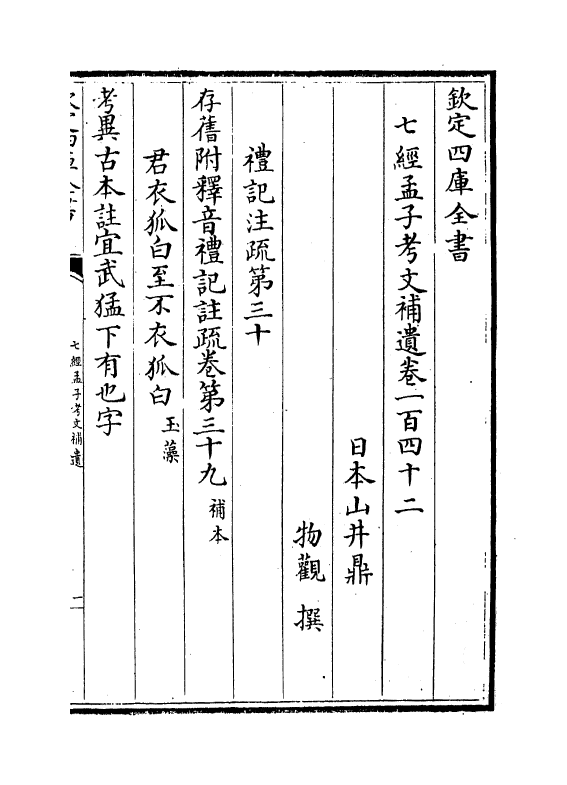 欽定四庫全書
七經孟子考文補遺卷一百四十二
日本山井鼎
物觀 撰
禮記注疏第三十
存舊附釋音禮記註疏卷第三十九 補本
君衣狐白至不衣狐白 玉藻
考異古本註宜武猛下有也字
七經孟子考文補遺